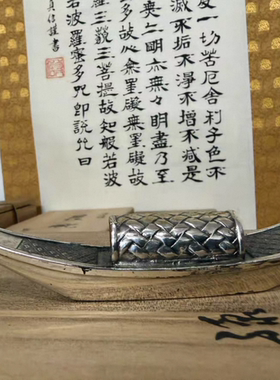 度一切苦厄舍利子色不
滅不垢不淨不增不減是
無〻明亦無〻明盡乃至
多故心無罣礙無罣礙故
三藐三菩提故知般若波
若波羅蜜多咒即說咒曰
信謹書